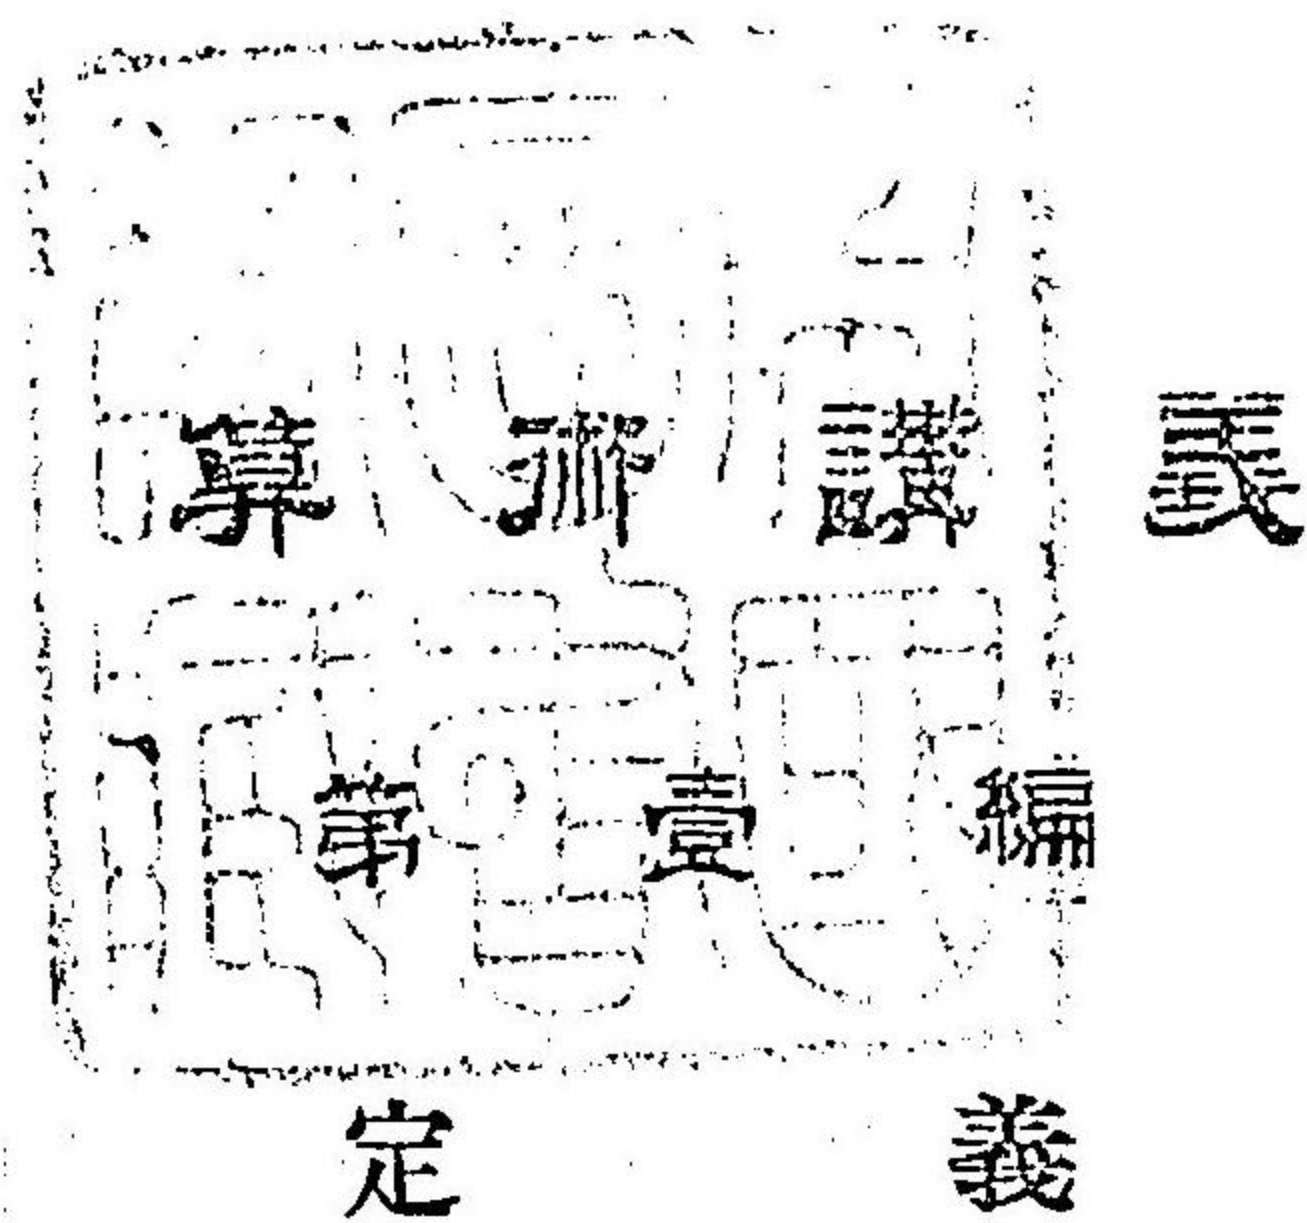 算術講義
第壹編
定義